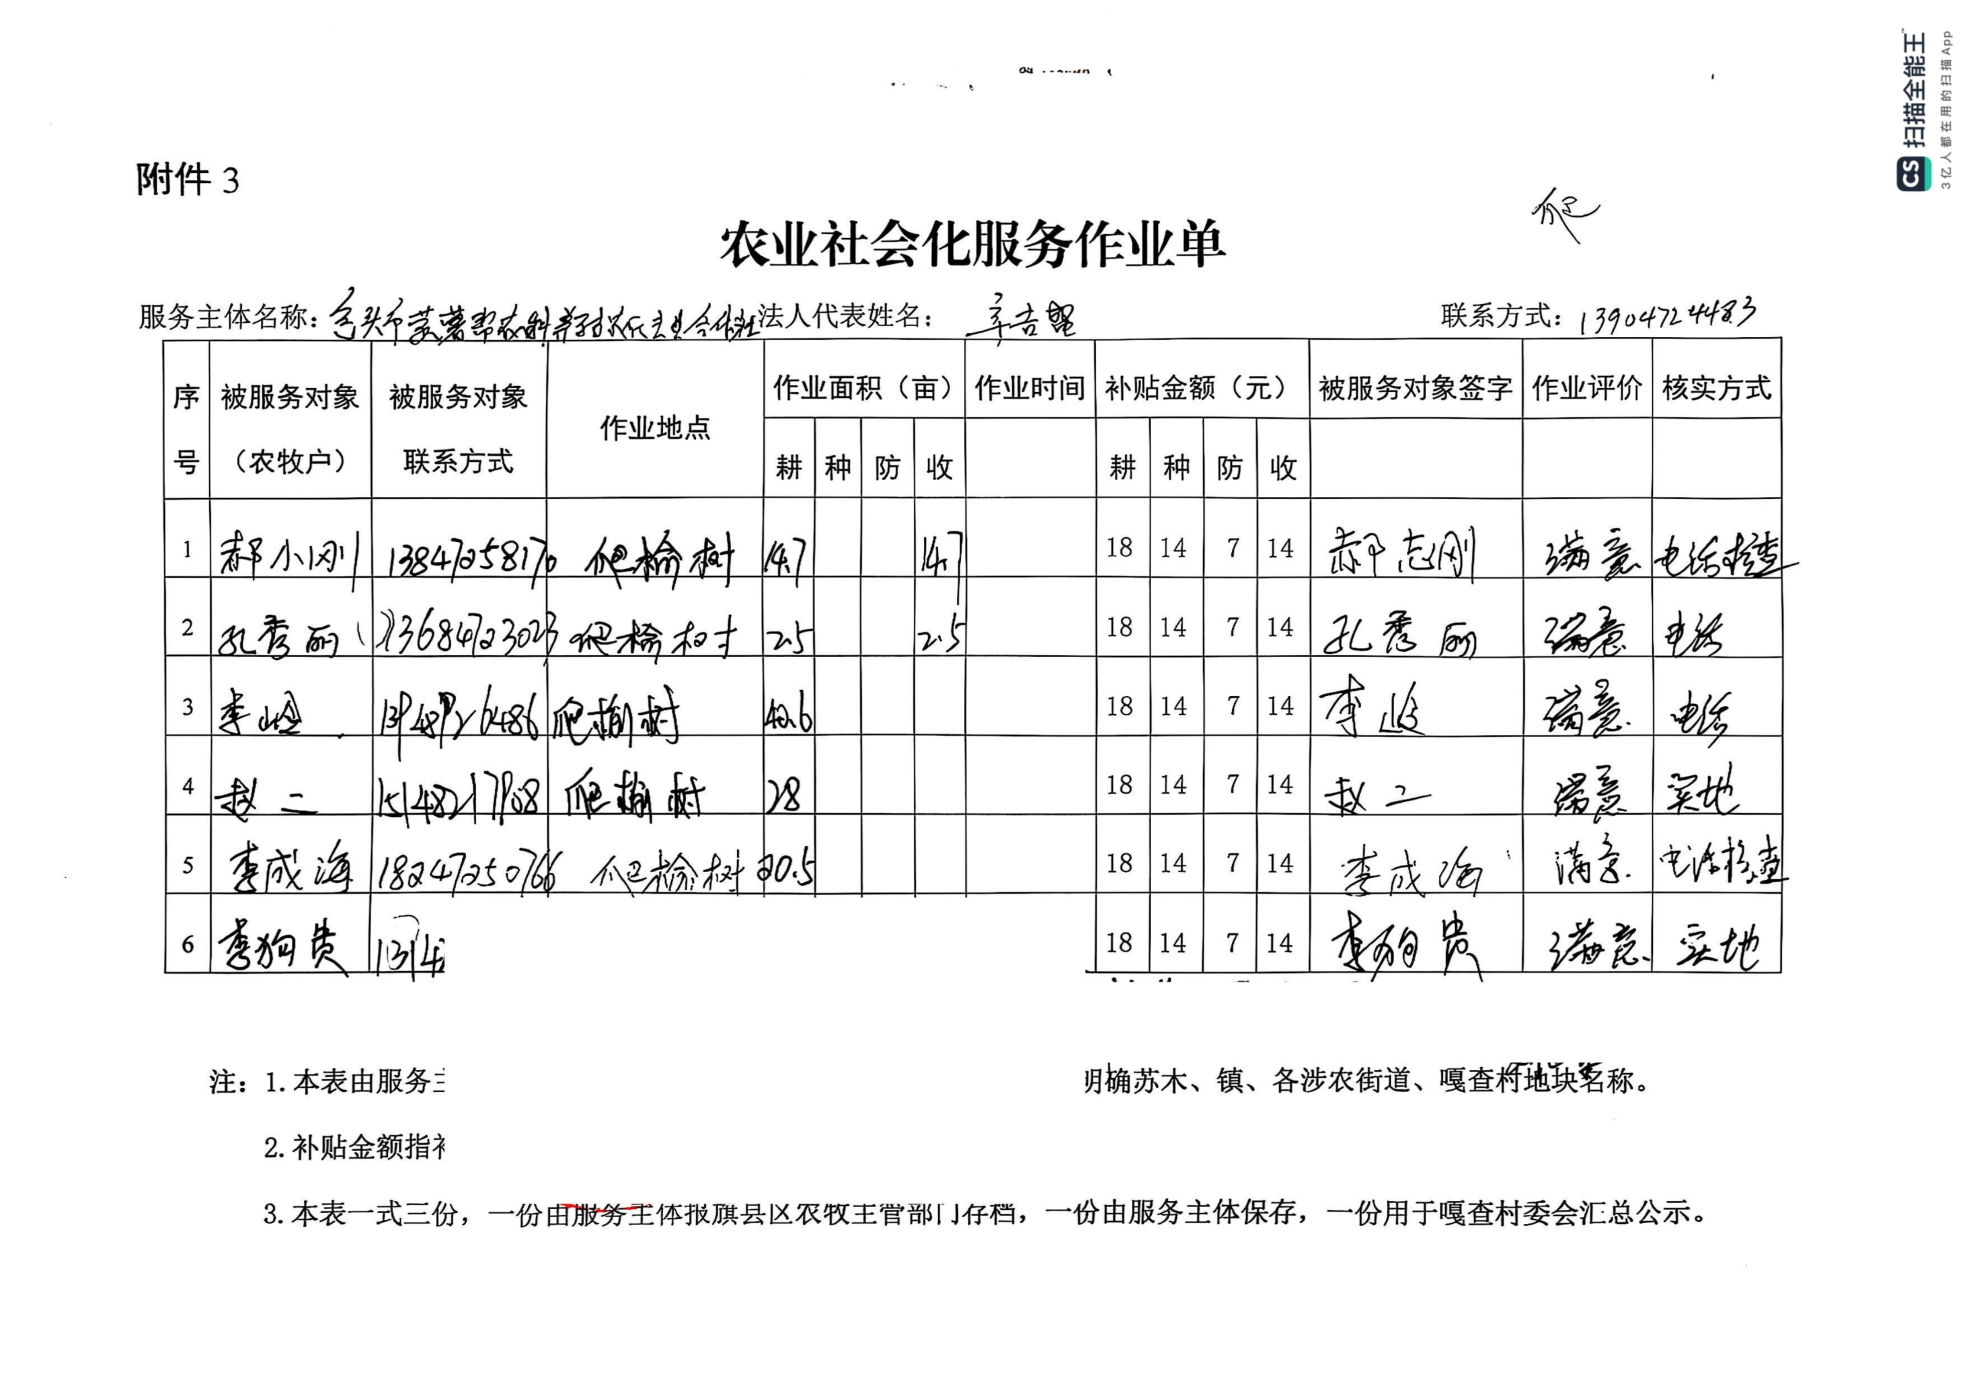 扫描全能王
3亿人都在用的扫描App
附件 3
农业社会化服务作业单
服务主体名称： 法人代表姓名： 联系方式：13904724483
序号 被服务对象（农牧户） 被服务对象联系方式 作业地点 作业面积（亩） 作业时间 补贴金额（元） 被服务对象签字 作业评价 核实方式
耕 种 防 收 耕 种 防 收
1 郝小刚 13847258170 爬榆树 14.7 14.7 18 14 7 14 郝志刚 满意 电话核查
2 孔秀丽 13684723023 爬榆树 2.5 2.5 18 14 7 14 孔秀丽 满意 电话
3 李 爬榆树 42.6 18 14 7 14 李 满意 电话
4 赵二 爬榆树 28 18 14 7 14 赵二 满意 实地
5 李成海 18247250766 爬榆树 20.5 18 14 7 14 李成海 满意 电话核查
6 李狗贵 18 14 7 14 李狗贵 满意 实地
注：1.本表由服务 明确苏木、镇、各涉农街道、嘎查村地块名称。
2.补贴金额指
3.本表一式三份，一份由服务主体报旗县区农牧主管部门存档，一份由服务主体保存，一份用于嘎查村委会汇总公示。